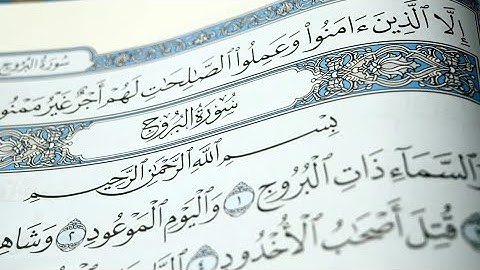 سُورَةُ البُرُوجِ
إِلَّا ٱلَّذِينَ ءَامَنُوا۟ وَعَمِلُوا۟ ٱلصَّٰلِحَٰتِ لَهُمْ أَجْرٌ غَيْرُ مَمْنُو
سُورَةُ البُرُوجِ
بِسْمِ ٱللَّهِ ٱلرَّحْمَٰنِ ٱلرَّحِيمِ
وَٱلسَّمَآءِ ذَاتِ ٱلْبُرُوجِ ١ وَٱلْيَوْمِ ٱلْمَوْعُودِ ٢ وَشَاهِ
قُتِلَ أَصْحَٰبُ ٱلْأُخْدُودِ ٤